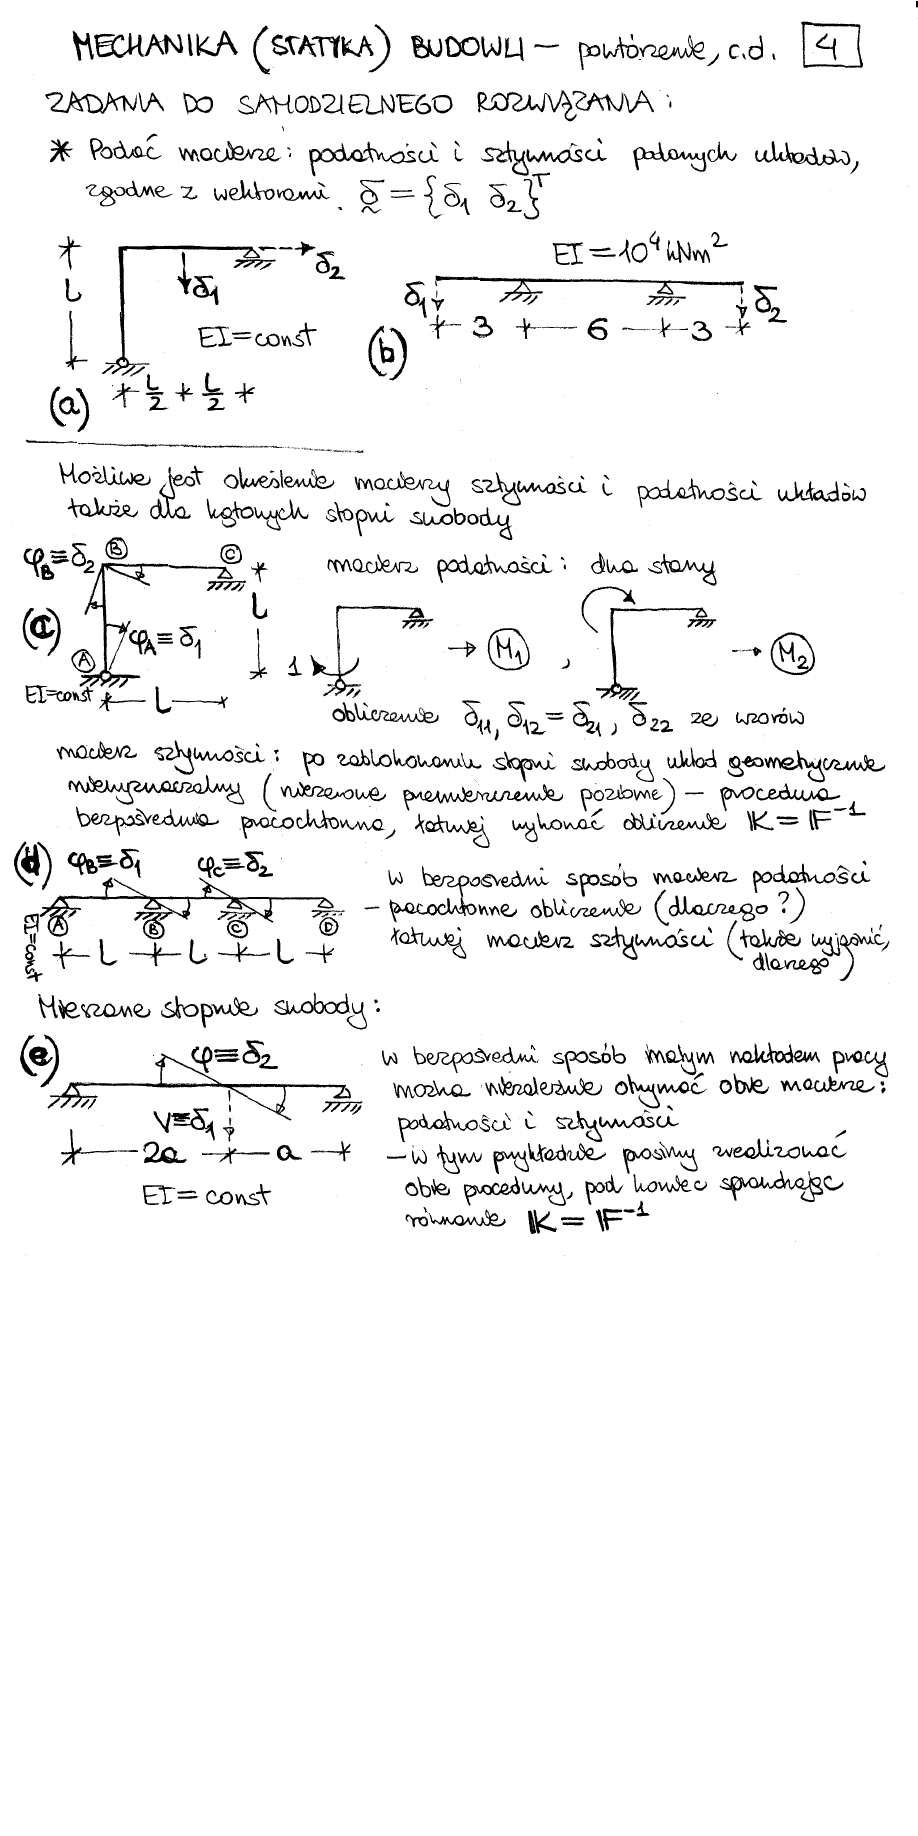 MECHANIKA (STATYKA) BUDOWLI – powtórzenie, c.d. 4
ZADANIA DO SAMODZIELNEGO ROZWIĄZANIA:
* Podać macierze: podatności i sztywności podanych układów,
zgodne z wektorami δ = {δ1 δ2}^T
L
δ1
δ2
EI = const
(a)
L/2 L/2
EI = 10^4 kNm^2
δ1
δ2
(b)
3 6 3
Możliwe jest określenie macierzy sztywności i podatności układów
także dla kątowych stopni swobody
φB ≡ δ2
B
C
(c)
φA ≡ δ1
A
EI = const
L
L
macierz podatności: dwa stany
1
→ M1 ,
→ M2
obliczenie δ11, δ12 = δ21, δ22 ze wzorów
macierz sztywności: po zablokowaniu stopni swobody układ geometrycznie
niewyznaczalny (niezerowe przemieszczenie poziome) – procedura
bezpośrednia pracochłonna, łatwiej wykonać obliczenie K = F^-1
(d)
φB ≡ δ1
φC ≡ δ2
A B C D
EI = const
L L L
w bezpośredni sposób macierz podatności
– pacochłonne obliczenie (dlaczego?)
łatwiej macierz sztywności (także wyjaśnić,
dlaczego)
Mieszane stopnie swobody:
(e)
φ ≡ δ2
V ≡ δ1
2a a
EI = const
w bezpośredni sposób małym nakładem pracy
można niezależnie otrzymać obie macierze:
podatności i sztywności
– w tym przykładzie prosimy zrealizować
obie procedury, pod koniec sprawdzając
równanie K = F^-1